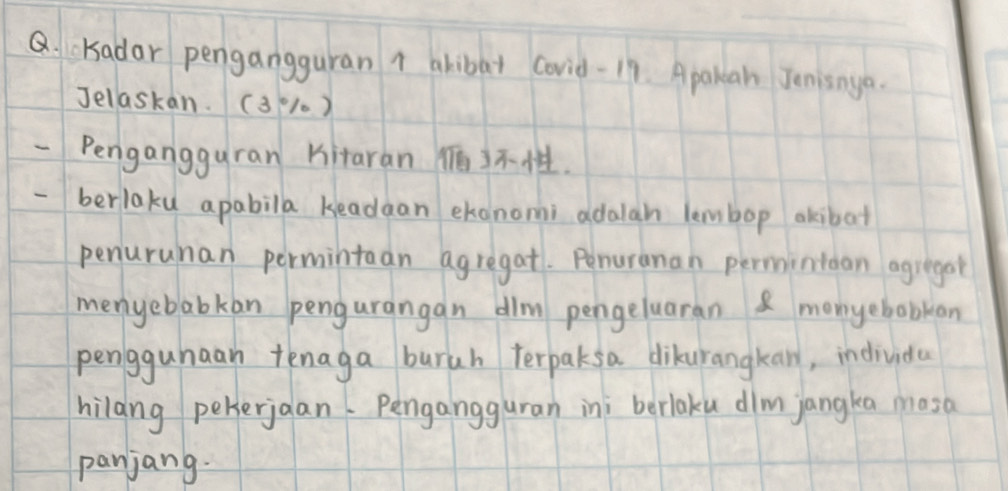 Q. Kadar pengangguran ↑ akibat Covid-19. Apakah Jenisnya.
Jelaskan. (3%)
- Pengangguran Kitaran 循环性.
- berlaku apabila keadaan ekonomi adalah lembap akibat
penurunan permintaan agregat. Penurunan permintaan agregat
menyebabkan pengurangan dlm pengeluaran & menyebabkan
penggunaan tenaga buruh terpaksa dikurangkan, individu
hilang pekerjaan. Pengangguran ini berlaku dlm jangka masa
panjang.